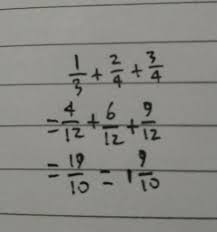 1/3 + 2/4 + 3/4
= 4/12 + 6/12 + 9/12
= 19/10 = 1 9/10